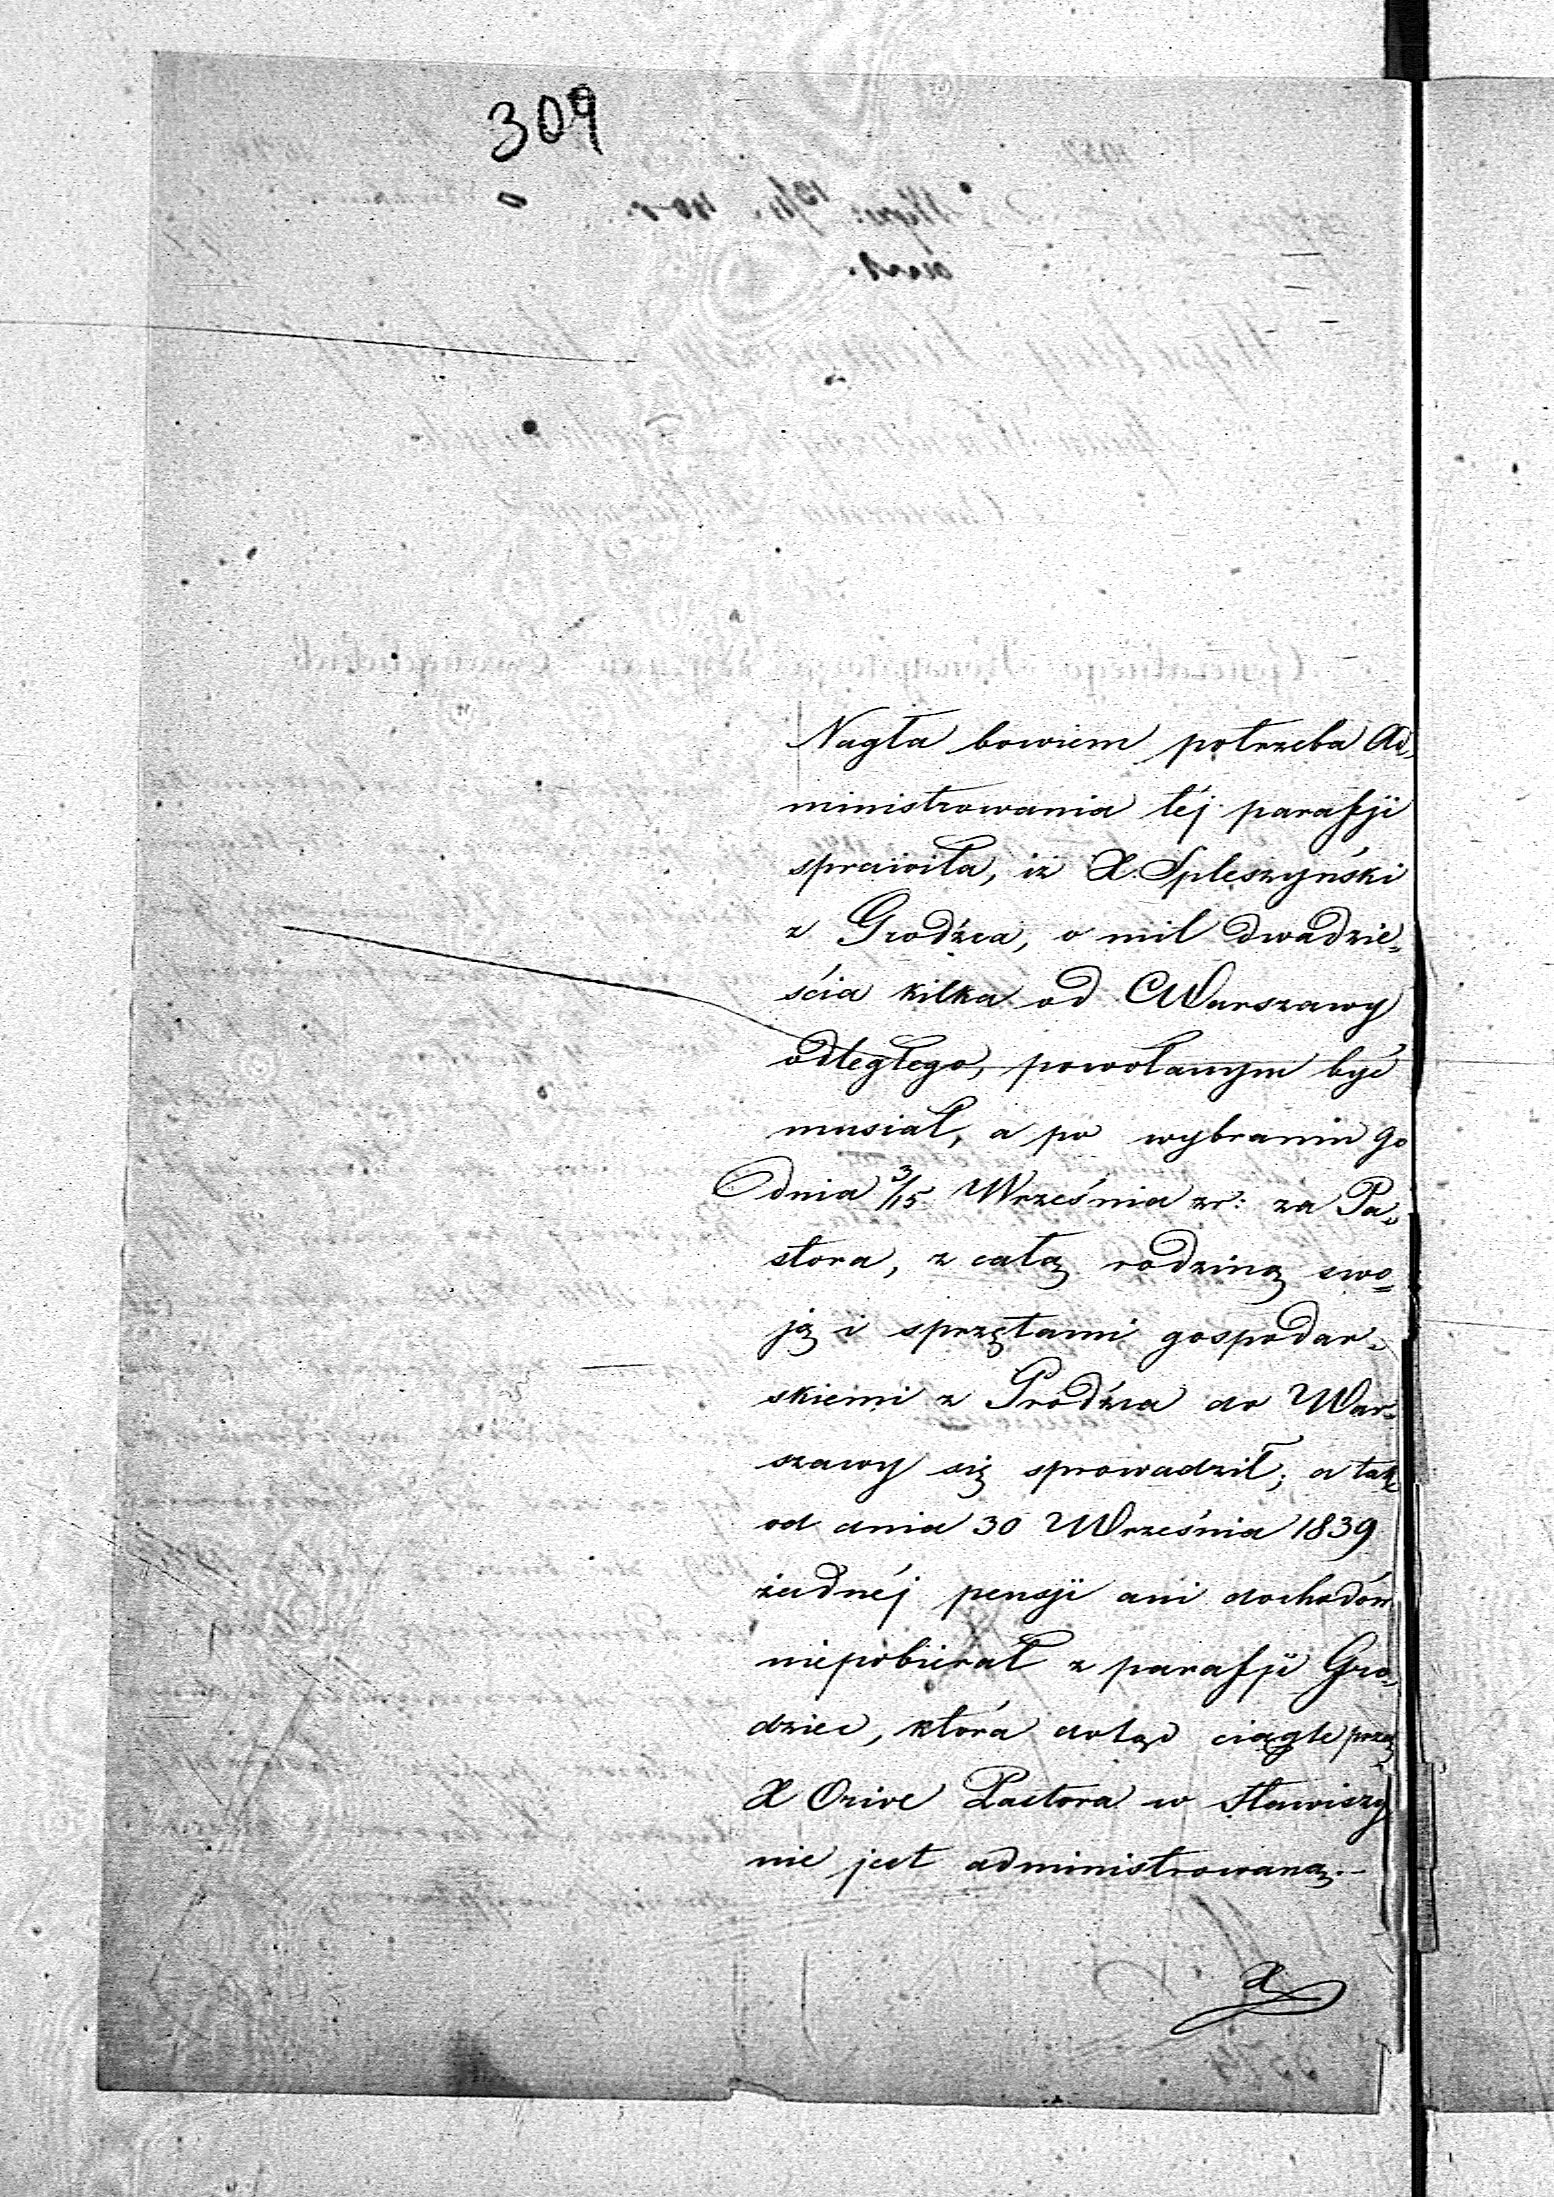 309
Nagła bowiem potrzeba Ad„
ministrowania téj parafji
sprawiła, iż X. Spleszyński
z Grodźca, o mil dwadzie„
ścia kilka od Warszawy
odległego, powołanym być
musiał, a po wybraniu go
dnia 3/15 Września zr: za Pa„
stora, z całą rodziną swo„
ją i sprzętami gospodar„
skiemi z Grodźca do War„
szawy się sprowadził; a tak
od dnia 30 Września 1839
żadnéj pensji ani dochodów
niepobierał z parafji Gro„
dziec, która dotąd ciągle przez
X Orive Pastora w Stawiszy
nie jest administrowaną.–